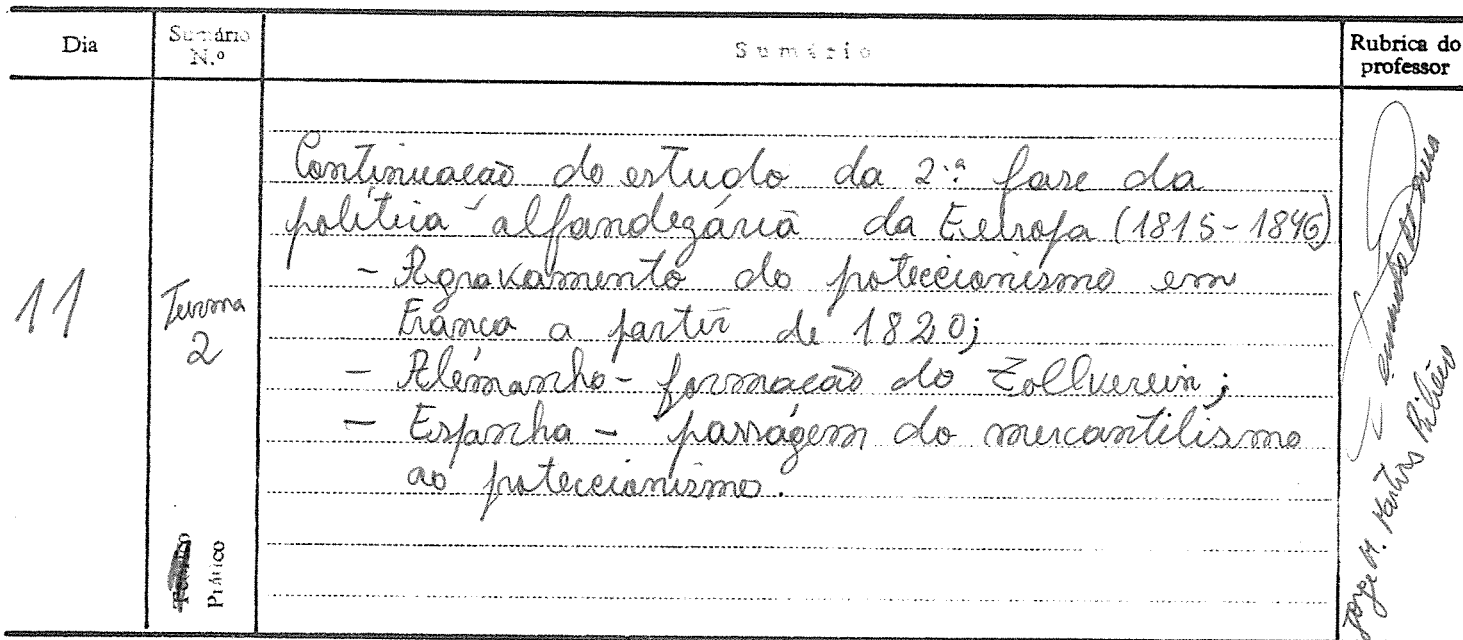 Dia
Sumário N.º
Sumário
Rubrica do professor
11
Turma 2
Continuação do estudo da 2.ª fase da
política alfandegária da Europa (1815-1846)
- Agravamento do proteccionismo em
França a partir de 1820;
- Alemanha - formação do Zollverein;
- Espanha - passagem do mercantilismo
ao proteccionismo.
Prático
Jorge M. Martins Ribeiro